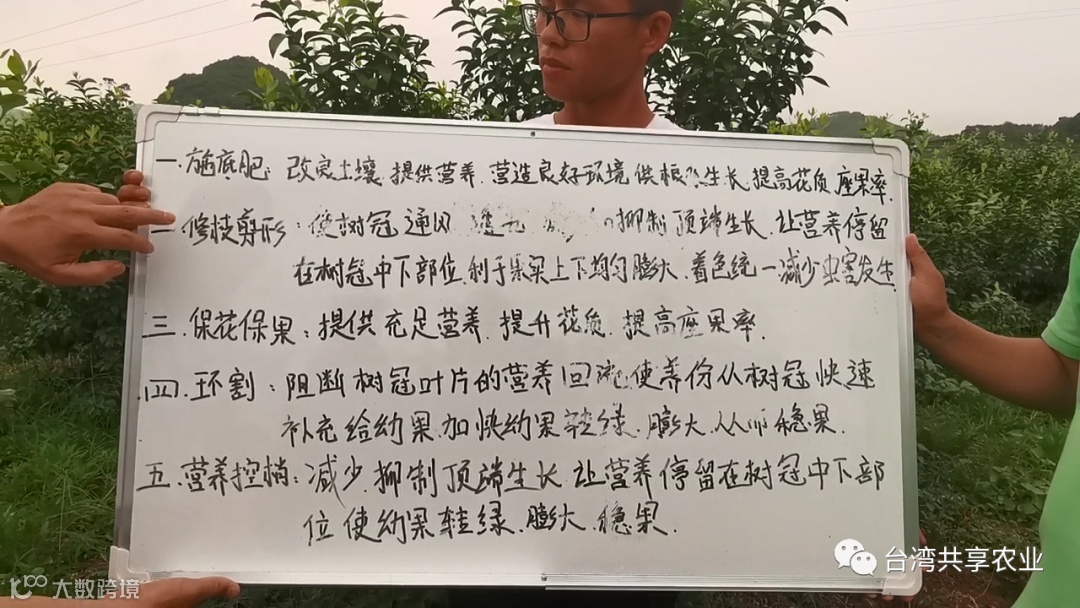 一.施底肥:改良土壤.提供营养.营造良好环境供根系生长.提高花质.座果率.
二.修枝剪形:使树冠通风 透光 抑制顶端生长.让营养停留
在树冠中下部位.利于果实上下均匀膨大.着色统一减少虫害发生.
三.保花保果:提供充足营养.提升花质.提高座果率.
四.环割:阻断树冠叶片的营养回流使养份从树冠快速
补充给幼果.加快幼果转绿.膨大.从而稳果.
五.营养控梢:减少.抑制顶端生长.让营养停留在树冠中下部
位.使幼果转绿.膨大.稳果.
台湾共享农业
大数跨境